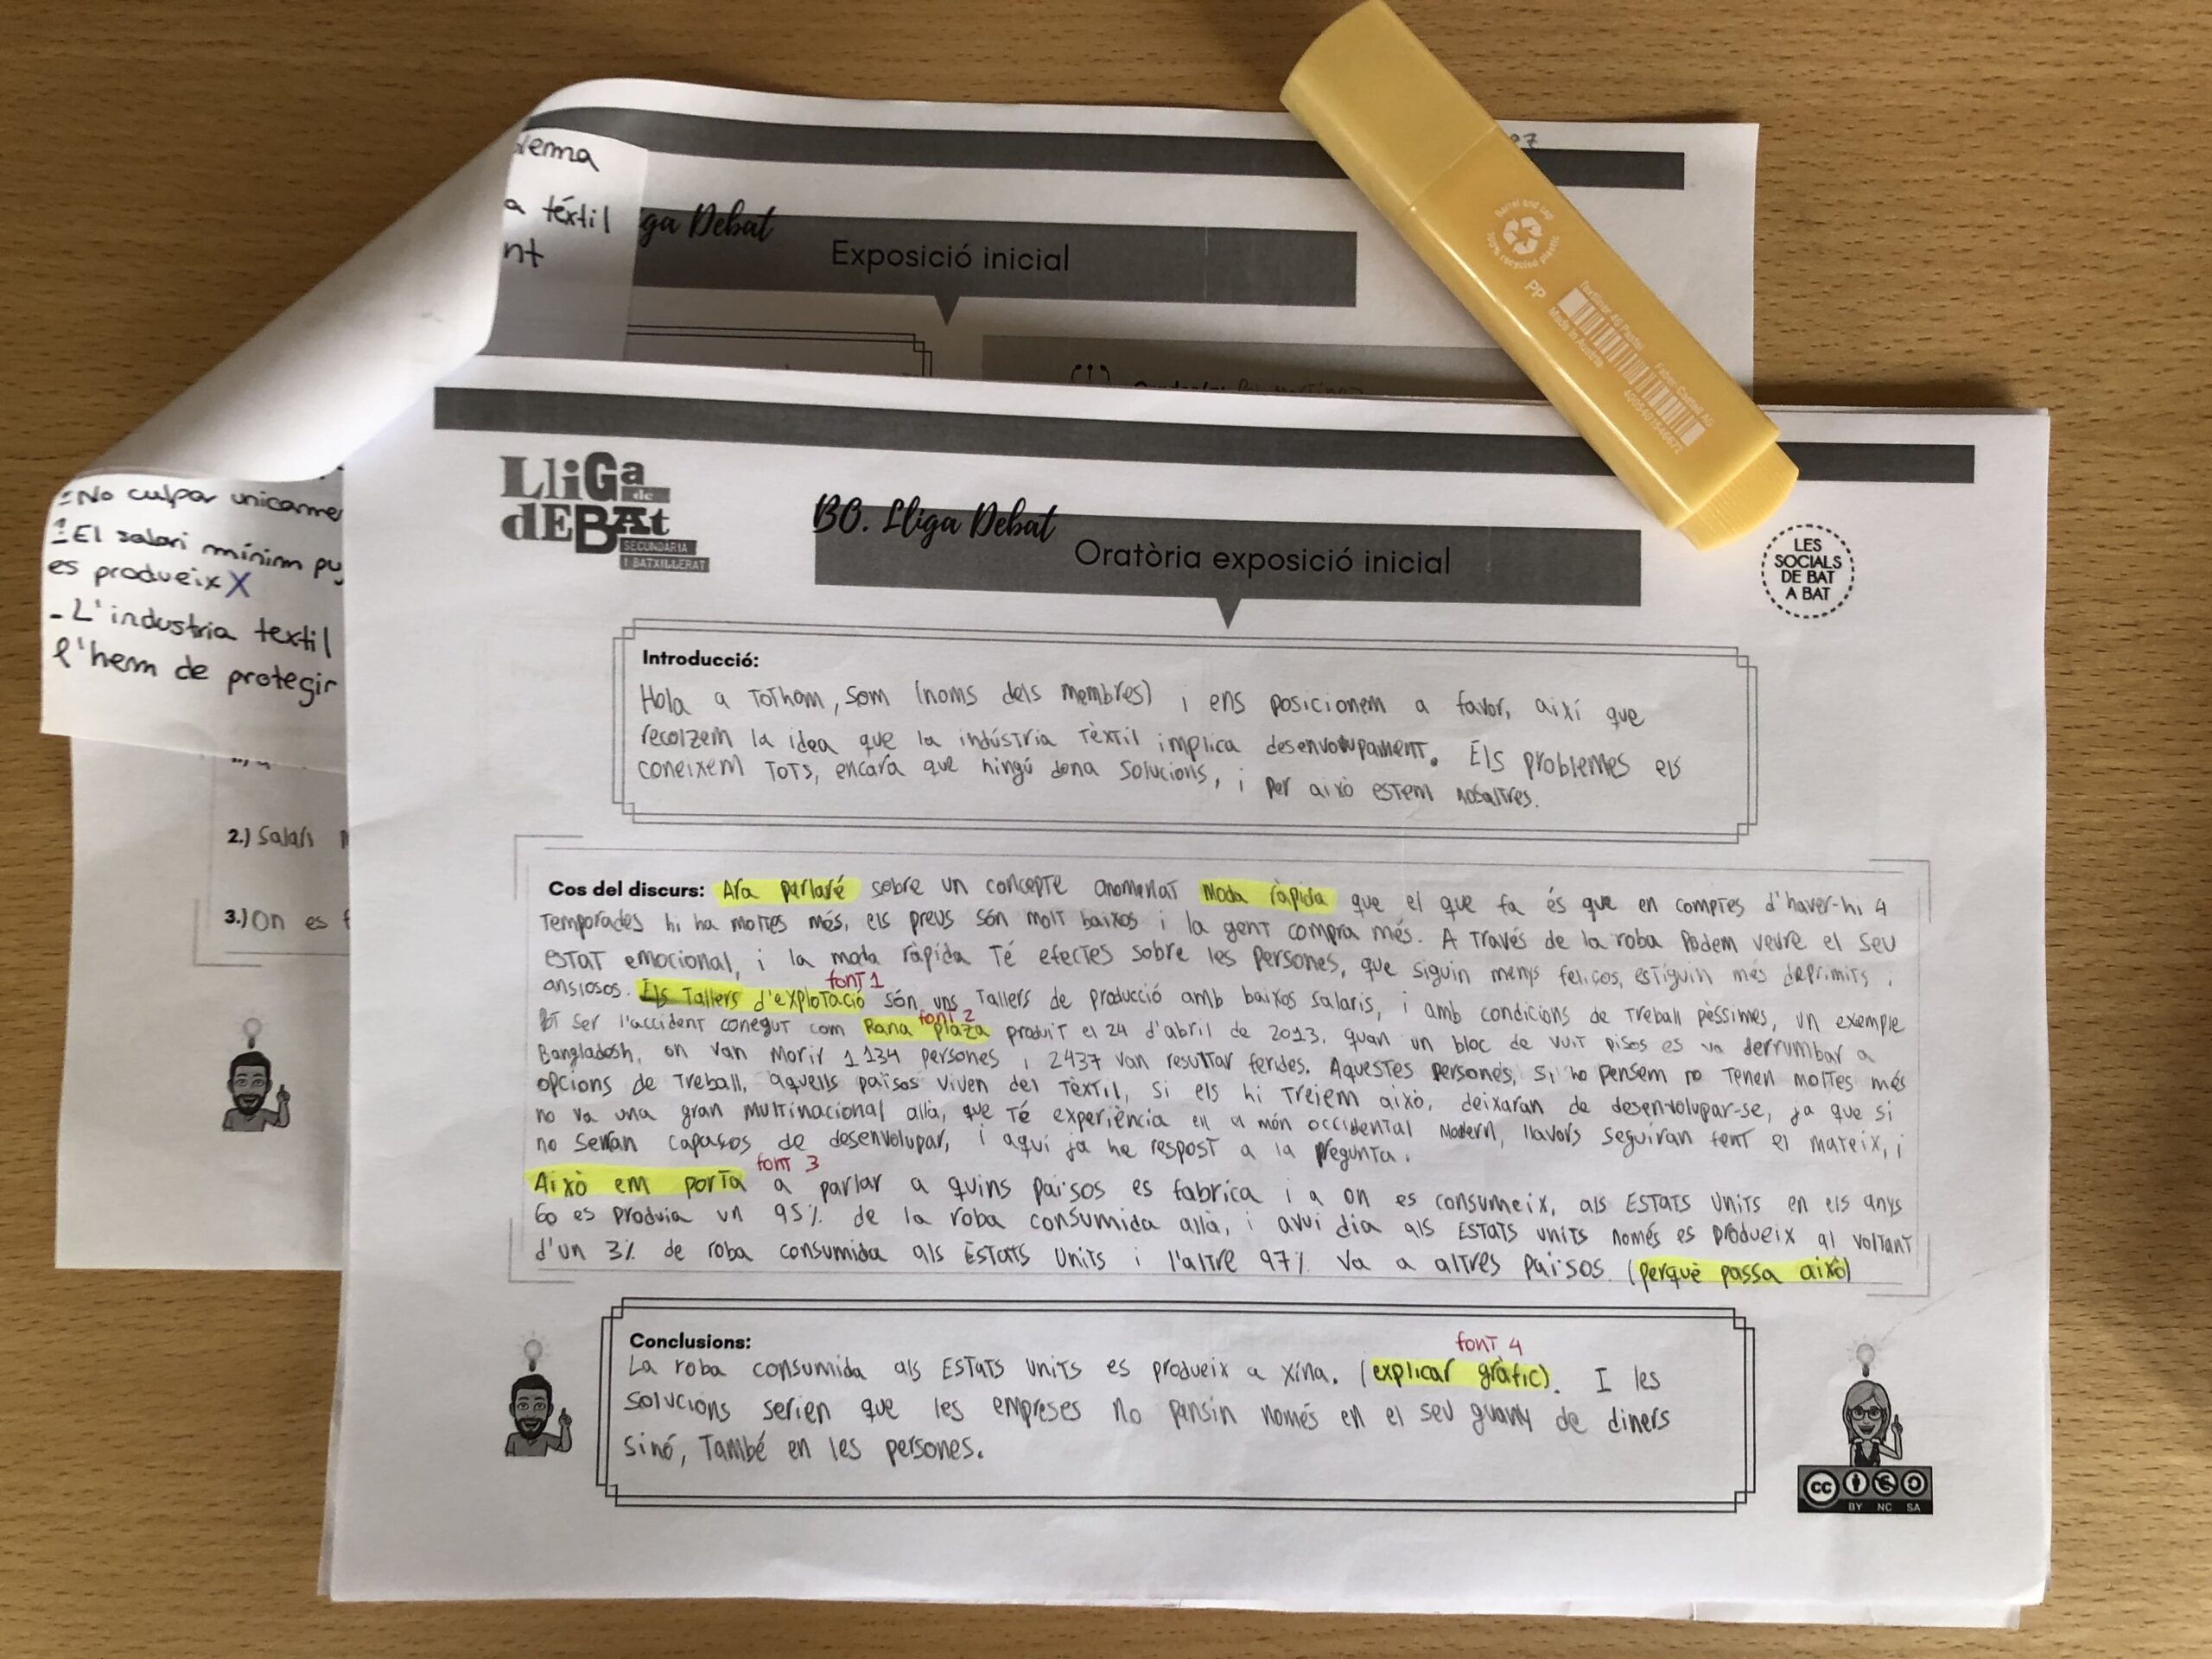 lema
a téxtil
nt
ga Debat
Exposició inicial
Barrel and cap
100% recycled plastic
PP
Textliner 46 Pastel
Made in Austria
Faber-Castell AG
LliGa
de
dEBAt
SECUNDÀRIA
I BATXILLERAT
BO. Lliga Debat
Oratòria exposició inicial
LES
SOCIALS
DE BAT
A BAT
-No culpar unicame
El salari mínim pu
es produeix X
- L'industria textil
l'hem de protegir
2.) Salari
3.) On es f
Introducció:
Hola a tothom, som (noms dels membres) i ens posicionem a favor, així que
recolzem la idea que la indústria tèxtil implica desenvolupament. Els problemes els
coneixem tots, encara que ningú dona solucions, i per això estem nosaltres.
Cos del discurs: Ara parlaré sobre un concepte anomenat moda ràpida que el que fa és que en comptes d'haver-hi 4
temporades hi ha moltes més, els preus són molt baixos i la gent compra més. A través de la roba podem veure el seu
estat emocional, i la moda ràpida té efectes sobre les persones, que siguin menys feliços, estiguin més deprimits i
font 1
ansiosos. Els tallers d'explotació són uns tallers de producció amb baixos salaris, i amb condicions de treball pèssimes, un exemple
font 2
pot ser l'accident conegut com Rana plaza produit el 24 d'abril de 2013, quan un bloc de vuit pisos es va derrumbar a
Bangladesh, on van morir 1 134 persones i 2437 van resultar ferides. Aquestes persones, si ho pensem no tenen moltes més
opcions de treball, aquells països viven del tèxtil, si els hi treiem això, deixaran de desenvolupar-se, ja que si
no va una gran multinacional allà, que té experiència en el món occidental modern, llavors seguiran fent el mateix, i
no serian capaços de desenvolupar, i aquí ja he respost a la pregunta.
font 3
Això em porta a parlar a quins països es fabrica i a on es consumeix, als Estats Units en els anys
60 es produïa un 95% de la roba consumida allà, i avui dia als Estats Units només es produeix al voltant
d'un 3% de roba consumida als Estats Units i l'altre 97% va a altres països. (perquè passa això)
Conclusions:
font 4
La roba consumida als Estats Units es produeix a xina. (explicar gràfic). I les
solucions serien que les empreses no pensin només en el seu guany de diners
sinó, també en les persones.
cc
BY NC SA